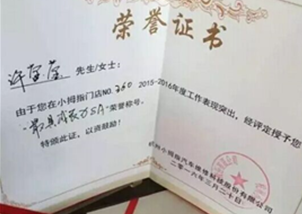 荣誉证书
许莹莹 先生/女士：
由于您在小拇指门店NO.260 2015-2016年度工作表现突出，经评定授予您
"最具成长力SA"荣誉称号。
特颁此证，以资鼓励！
杭州小拇指汽车维修科技股份有限公司
二零一六年三月二十日